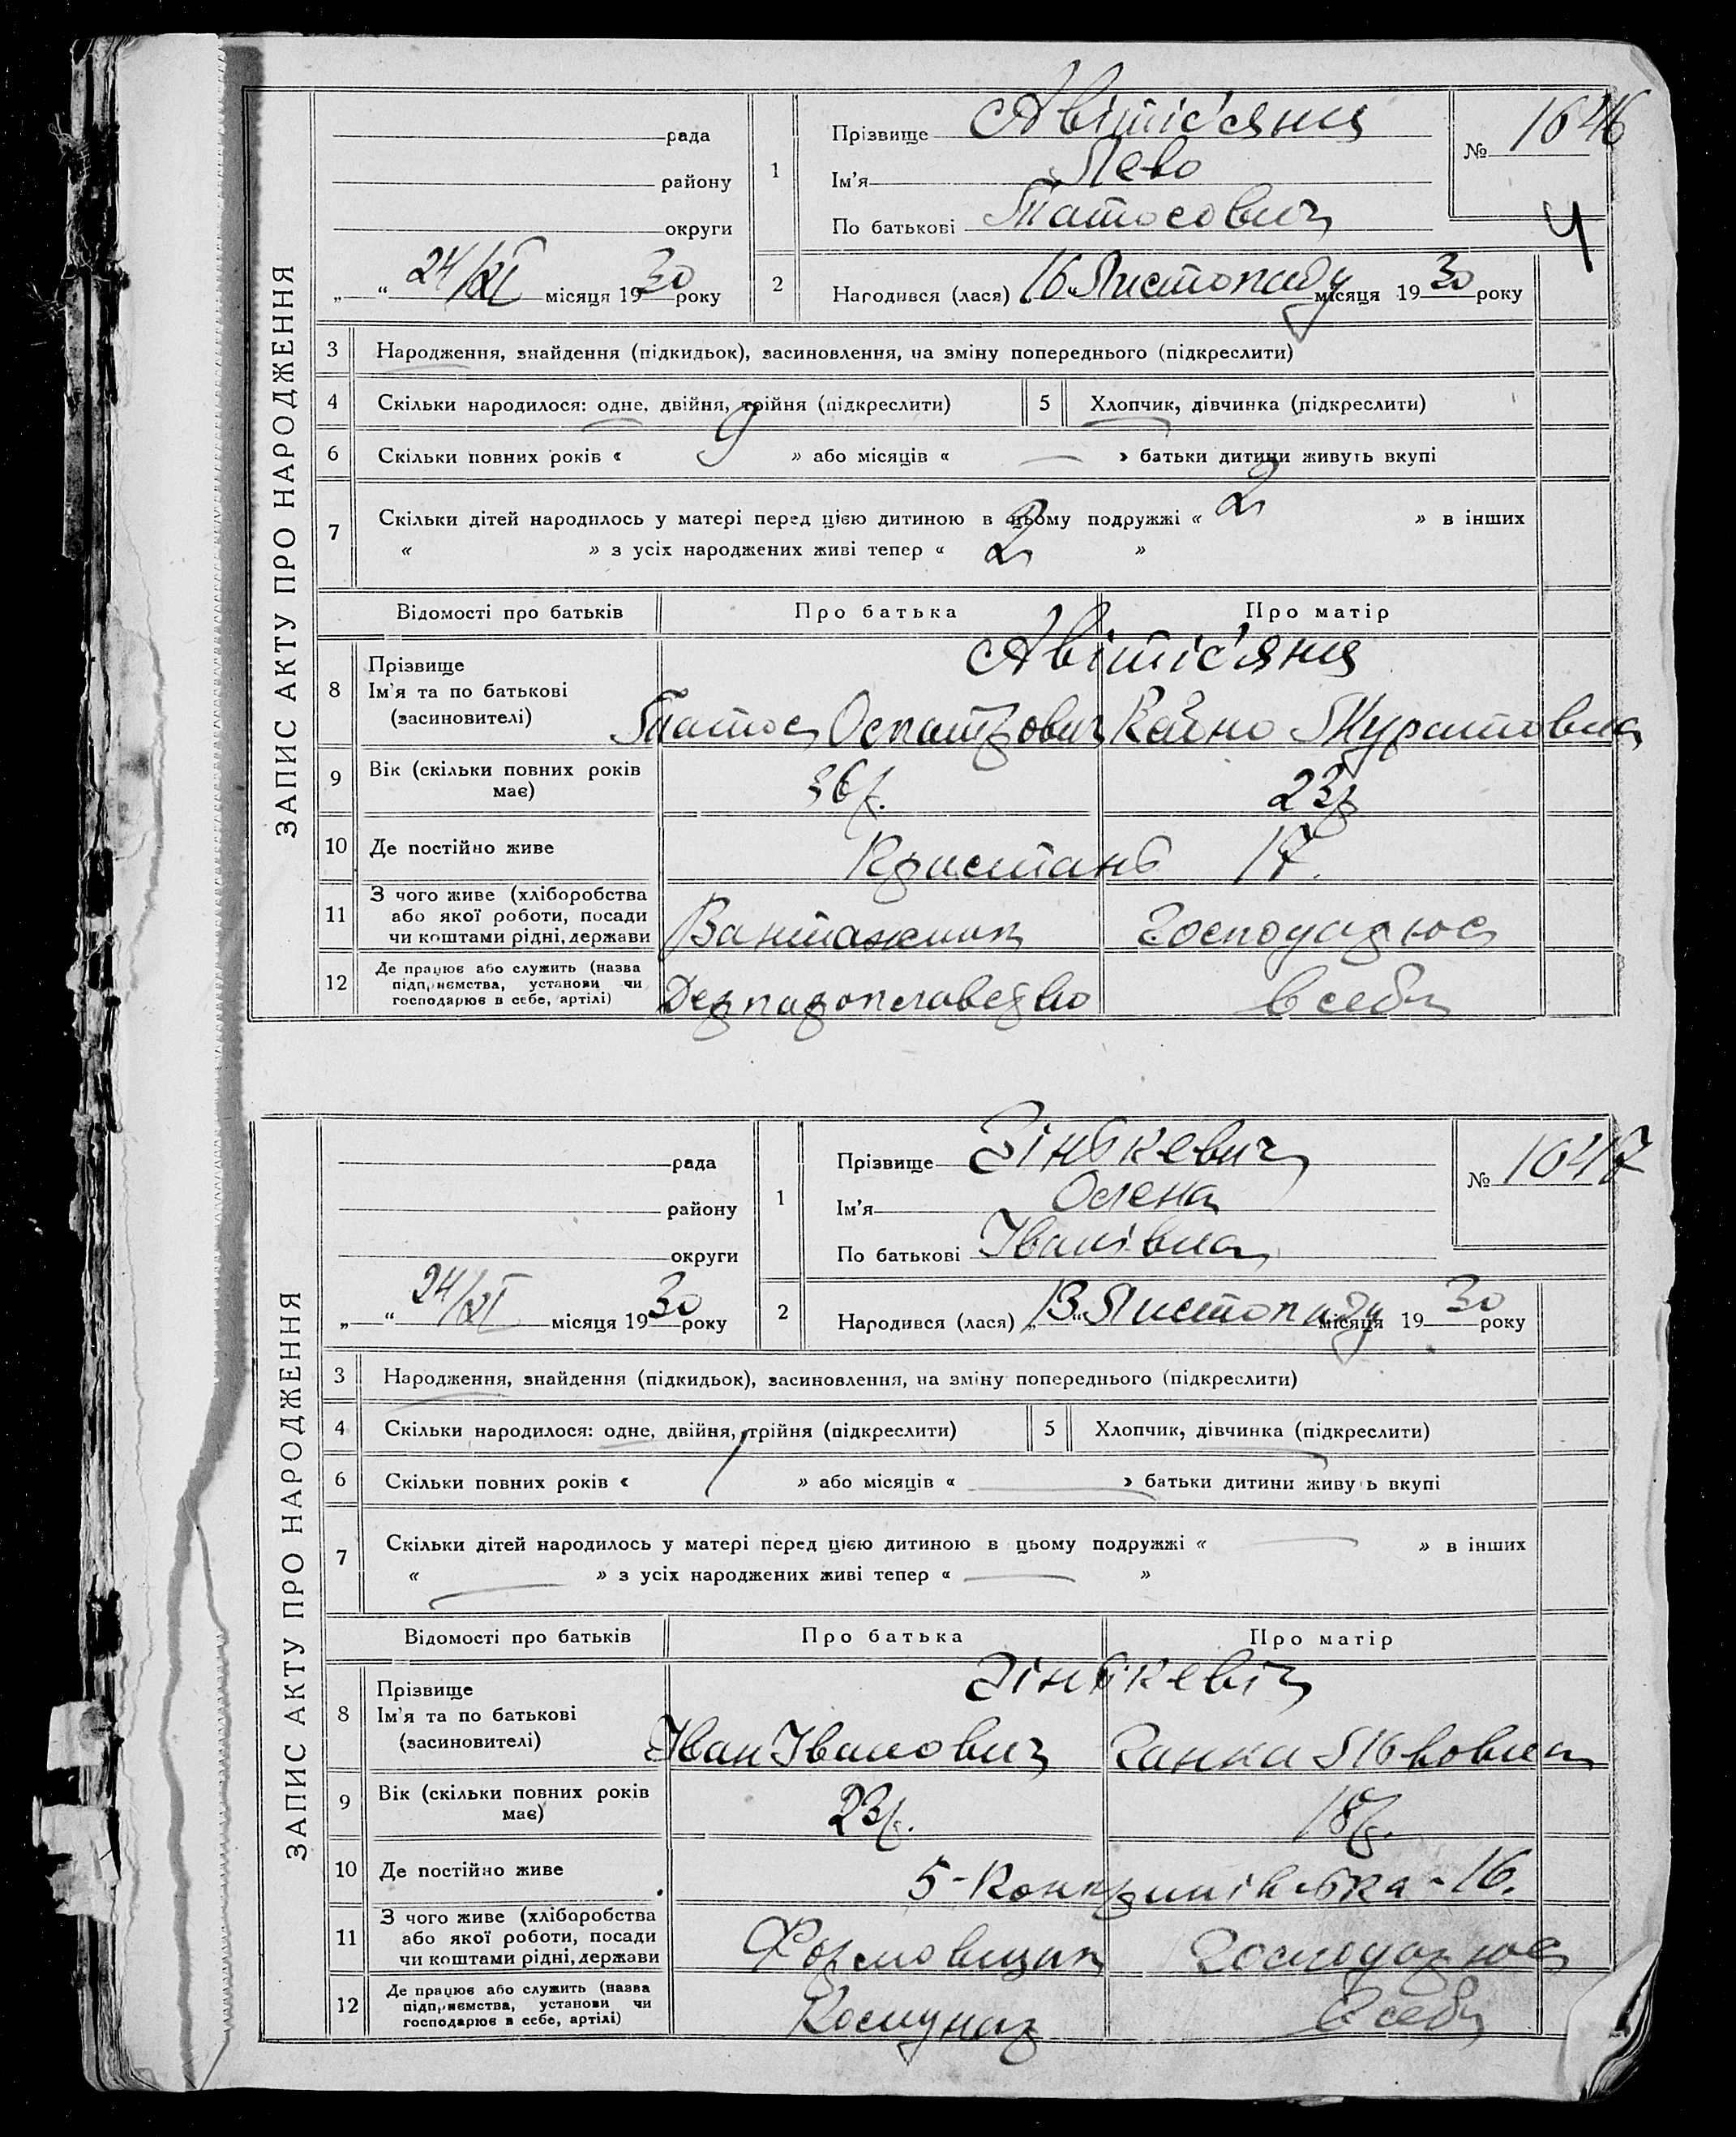 ЗАПИС АКТУ ПРО НАРОДЖЕННЯ
рада
району
округи
„ “ 24/XI місяця 1930 року
1
Прізвище Авітіс'янц
Ім'я Лево
По батькові Татосович
№ 1646
4
2
Народився (лася) 16 Листопаду місяця 1930 року
3 Народження, знайдення (підкидьок), засиновлення, на зміну попереднього (підкреслити)
4 Скільки народилося: одне, двійня, трійня (підкреслити) 5 Хлопчик, дівчинка (підкреслити)
6 Скільки повних років « 9 » або місяців « — » батьки дитини живуть вкупі
7 Скільки дітей народилось у матері перед цією дитиною в цьому подружжі « 2 » в інших
« » з усіх народжених живі тепер « 2 »
Відомості про батьків Про батька Про матір
8 Прізвище Ім'я та по батькові (засиновителі)
Авітіс'янц
Татос
9 Вік (скільки повних років має) 36р. 23р
10 Де постійно живе 17.
11 З чого живе (хліборобства або якої роботи, посади чи коштами рідні, держави Вантажник Господарює
12 Де працює або служить (назва підприємства, установи чи господарює в себе, артілі) Держпароплавство в себе
ЗАПИС АКТУ ПРО НАРОДЖЕННЯ
рада
району
округи
„ “ 24/XI місяця 1930 року
1
Прізвище Зінькевич
Ім'я Олена
По батькові Іванівна
№ 1647
2
Народився (лася) 13 Листопаду місяця 1930 року
3 Народження, знайдення (підкидьок), засиновлення, на зміну попереднього (підкреслити)
4 Скільки народилося: одне, двійня, трійня (підкреслити) 5 Хлопчик, дівчинка (підкреслити)
6 Скільки повних років « 1 » або місяців « — » батьки дитини живуть вкупі
7 Скільки дітей народилось у матері перед цією дитиною в цьому подружжі « — » в інших
« — » з усіх народжених живі тепер « — »
Відомості про батьків Про батька Про матір
8 Прізвище Ім'я та по батькові (засиновителі)
Зінькевіч
Іван Іванович Ганна
9 Вік (скільки повних років має) 23р. 18р.
10 Де постійно живе 16.
11 З чого живе (хліборобства або якої роботи, посади чи коштами рідні, держави Формовщик Господарює
12 Де працює або служить (назва підприємства, установи чи господарює в себе, артілі) Комунар В себе